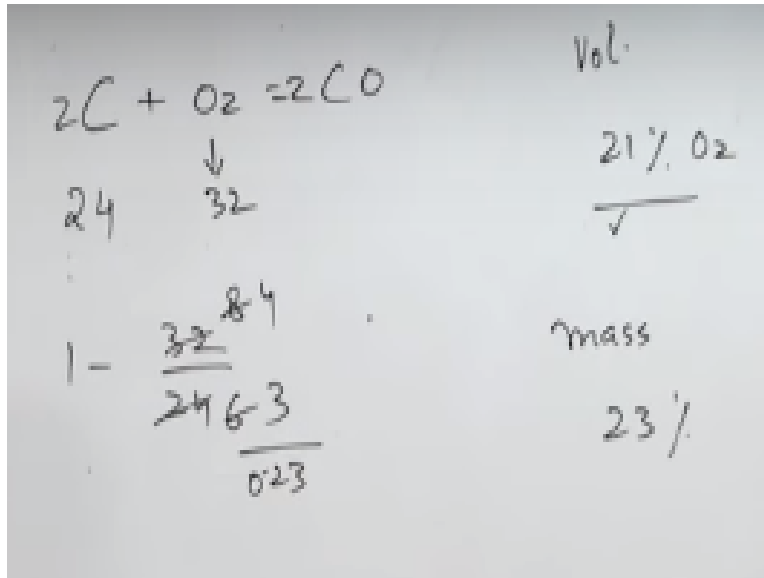 2C + O2 = 2CO
↓
24 32
1 - 32 8 4
24 6 3
0.23
Vol.
21% O2
✓
mass
23%